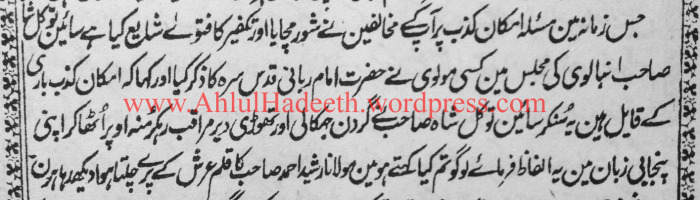 جس زمانہ مین مسئلہ امکان کذب پر آپکے مخالفین نے شور مچایا اور تکفیر کا فتوے شایع کیا ہے سائین توکل شاہ
صاحب انبالوی کی مجلس مین کسی مولوی نے حضرت امام ربانی قدس سرہ کا ذکر کیا اور کہا کہ امکان کذب باری
www.AhlulHadeeth.wordpress.com
کے قایل ہین یہ سُنکر سائین توکل شاہ صاحب نے گردن جھکالی اور تھوڑی دیر مراقب رہکر مُنہ اوپر اُٹھا کر اپنی
پنجابی زبان مین یہ الفاظ فرمائے لوگو تم کیا کہتے ہو مین مولانا رشید احمد صاحب کا قلم عرش کے پرے چلتا ہوا دیکھ رہا ہون